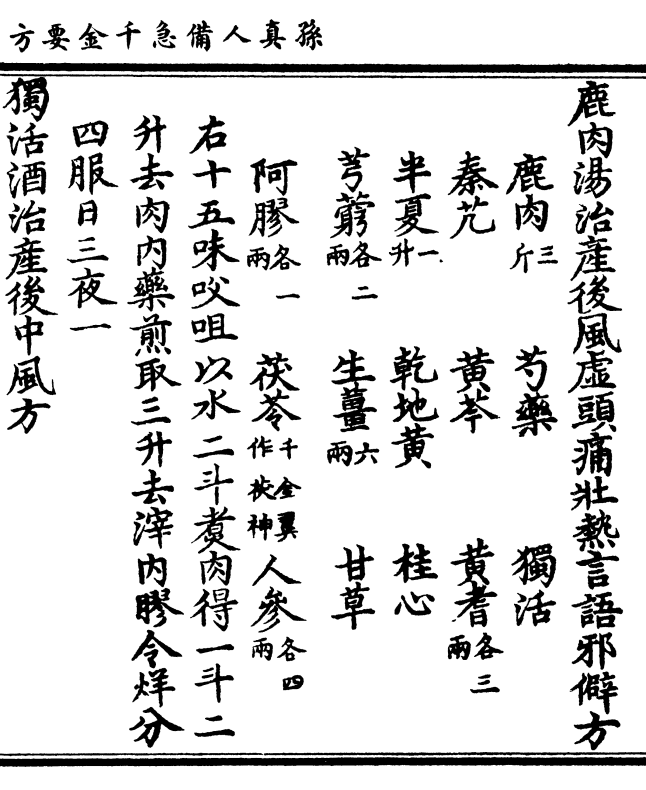 孫真人備急千金要方
鹿肉湯治產後風虛頭痛壯熱言語邪僻方
鹿肉三斤 芍藥 獨活
秦艽 黃芩 黃耆各三兩
半夏一升 乾地黃 桂心
芎藭各二兩 生薑六兩 甘草
阿膠各一兩 茯苓千金翼作茯神 人參各四兩
右十五味㕮咀以水二斗煑肉得一斗二
升去肉內藥煎取三升去滓內膠令烊分
四服日三夜一
獨活酒治產後中風方